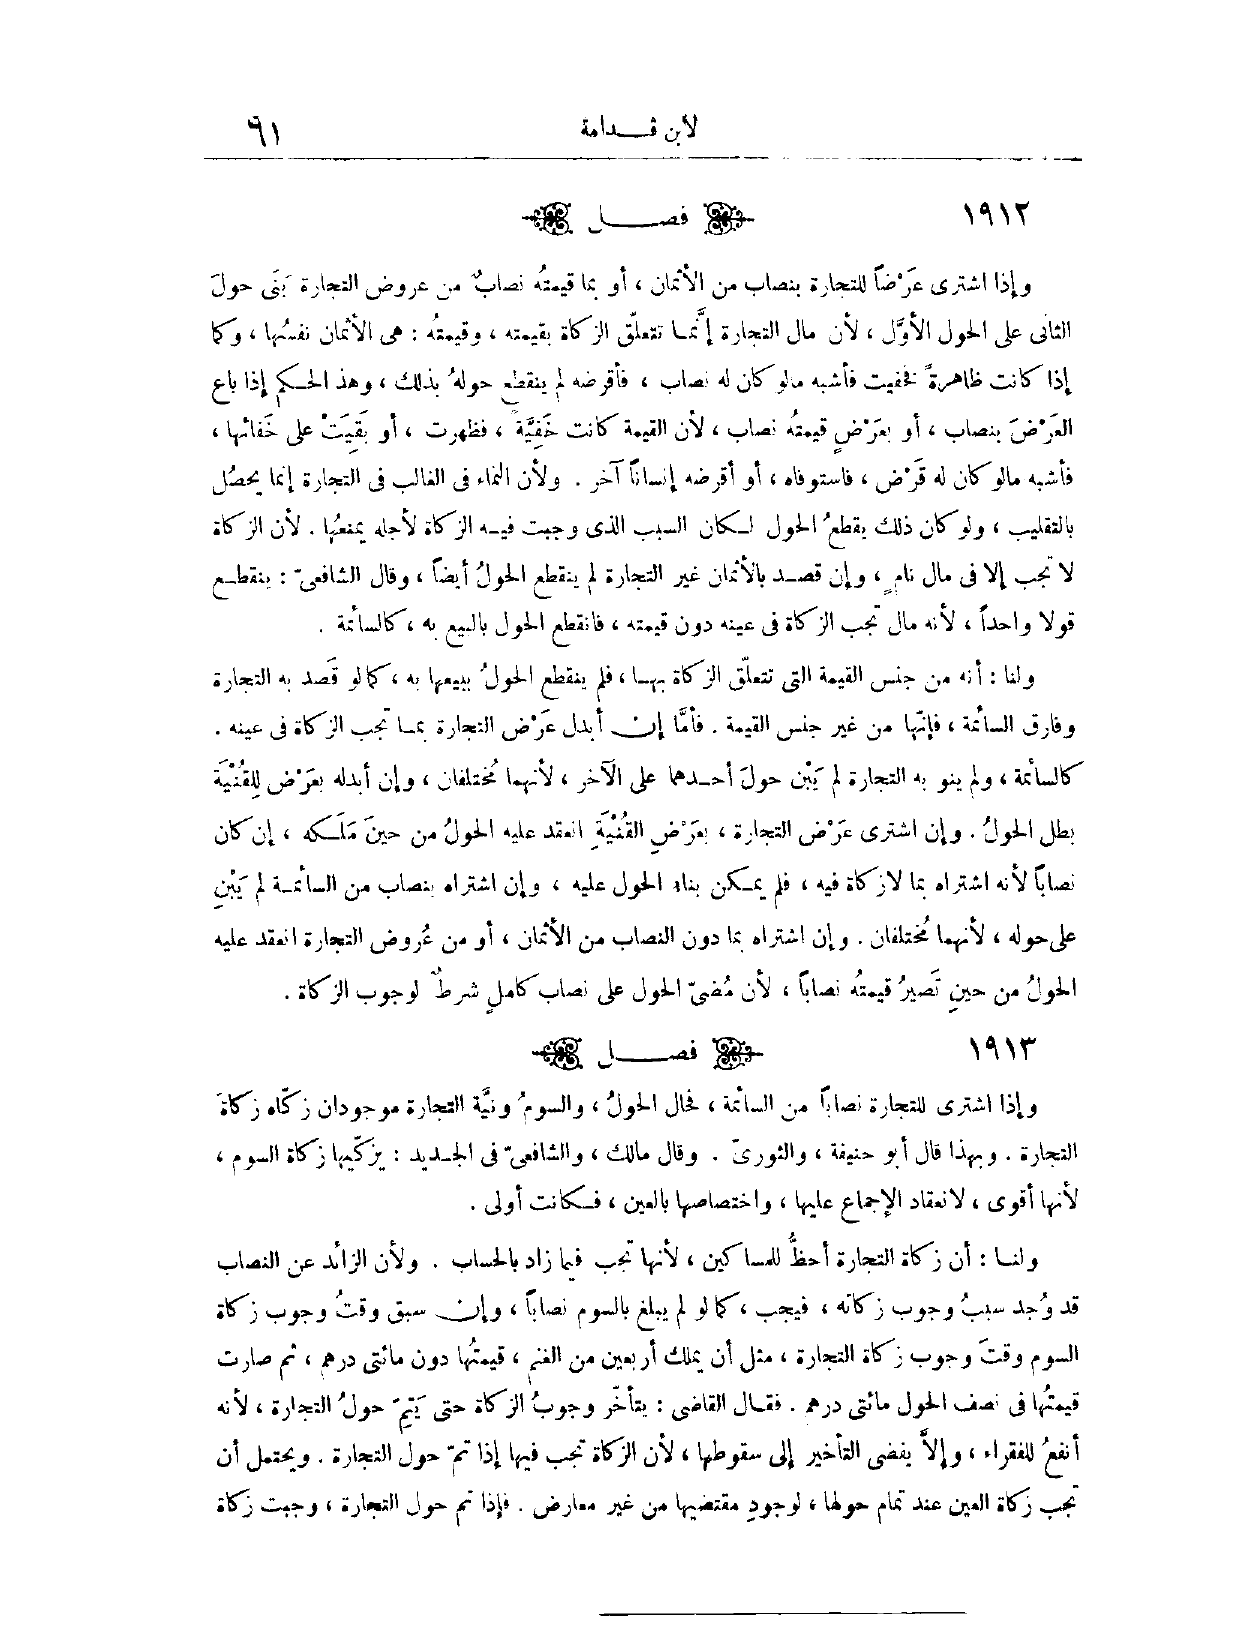 لابن قدامة ٦١
١٩١٢ فصل
وإذا اشترى عَرْضاً للتجارة بنصاب من الأثمان ، أو بما قيمتُه نصابٌ من عروض التجارة بَنَى حولَ
الثانى على الحول الأوَّل ، لأن مال التجارة إنَّما تتعلّق الزكاة بقيمته ، وقيمتُه : هى الأثمان نفسُها ، وكما
إذا كانت ظاهرةً فخفيت فأشبه مالو كان له نصاب ، فأقرضه لم ينقطع حولهُ بذلك ، وهذ الحكم إذا باع
العَرْضَ بنصاب ، أو بعَرْضٍ قيمتُه نصاب ، لأن القيمة كانت خَفِيَّةً ، فظهرت ، أو بَقِيَتْ على خَفائها ،
فأشبه مالو كان له قَرْض ، فاستوفاه ، أو أقرضه إنساناً آخر . ولأن النماء فى الغالب فى التجارة إنما يحصُل
بالتقليب ، ولو كان ذلك يقطعُ الحول لكان السبب الذى وجبت فيه الزكاة لأجله يمنعُها . لأن الزكاة
لا تجب إلا فى مال نامٍ ، وإن قصد بالأثمان غير التجارة لم ينقطع الحولُ أيضاً ، وقال الشافعىّ : ينقطع
قولا واحداً ، لأنه مال تجب الزكاة فى عينه دون قيمته ، فانقطع الحول بالبيع به ، كالسأئمة .
ولنا : أنه من جنس القيمة التى تتعلّق الزكاة بها ، فلم ينقطع الحولُ ببيعها به ، كما لو قَصد به التجارة
وفارق السأئمة ، فإنّها من غير جنس القيمة . فأمَّا إن أبدل عَرْض التجارة بما تجب الزكاة فى عينه .
كالسأئمة ، ولم ينو به التجارة لم يَبْن حولَ أحدهما على الآخر ، لأنهما مُختلفان ، وإن أبدله بعَرْض لِلقُنْيَة
بطل الحولُ . وإن اشترى عَرْض التجارة ، بعَرْضِ القُنْيَةِ انعقد عليه الحولُ من حينَ مَلَكه ، إن كان
نصاباً لأنه اشتراه بما لازكاة فيه ، فلم يمكن بناء الحول عليه ، وإن اشتراه بنصاب من السأئمة لم يَبْنِ
على حوله ، لأنهما مُختلفان . وإن اشتراه بما دون النصاب من الأثمان ، أو من عُروض التجارة انعقد عليه
الحولُ من حينِ تَصيرُ قيمتُه نصاباً ، لأن مُضىّ الحول على نصاب كاملٍ شرطٌ لوجوب الزكاة .
١٩١٣ فصل
وإذا اشترى للتجارة نصاباً من السأئمة ، فحال الحولُ ، والسومُ ونيَّة التجارة موجودان زكّاه زكاةَ
التجارة . وبهذا قال أبو حنيفة ، والثورىّ . وقال مالك ، والشافعىّ فى الجديد : يزكّيها زكاة السوم ،
لأنها أقوى ، لانعقاد الإجماع عليها ، واختصاصها بالعين ، فكانت أولى .
ولنا : أن زكاة التجارة أحظُّ للمساكين ، لأنها تجب فيما زاد بالحساب . ولأن الزائد عن النصاب
قد وُجد سببُ وجوب زكاته ، فيجب ، كما لو لم يبلغ بالسوم نصاباً ، وإن سبق وقتُ وجوب زكاة
السوم وقتَ وجوب زكاة التجارة ، مثل أن يملك أربعين من الغنم ، قيمتُها دون مائتى درهم ، ثم صارت
قيمتُها فى نصف الحول مائتى درهم . فقال القاضى : يتأخّر وجوبُ الزكاة حتى يَتِمّ حولُ التجارة ، لأنه
أنفعُ للفقراء ، وإلاَّ يفضى التأخير إلى سقوطها ، لأن الزكاة تجب فيها إذا تمّ حول التجارة . ويحتمل أن
تجب زكاة العين عند تمام حولها ، لوجودِ مقتضيها من غير معارض . فإذا تم حول التجارة ، وجبت زكاة